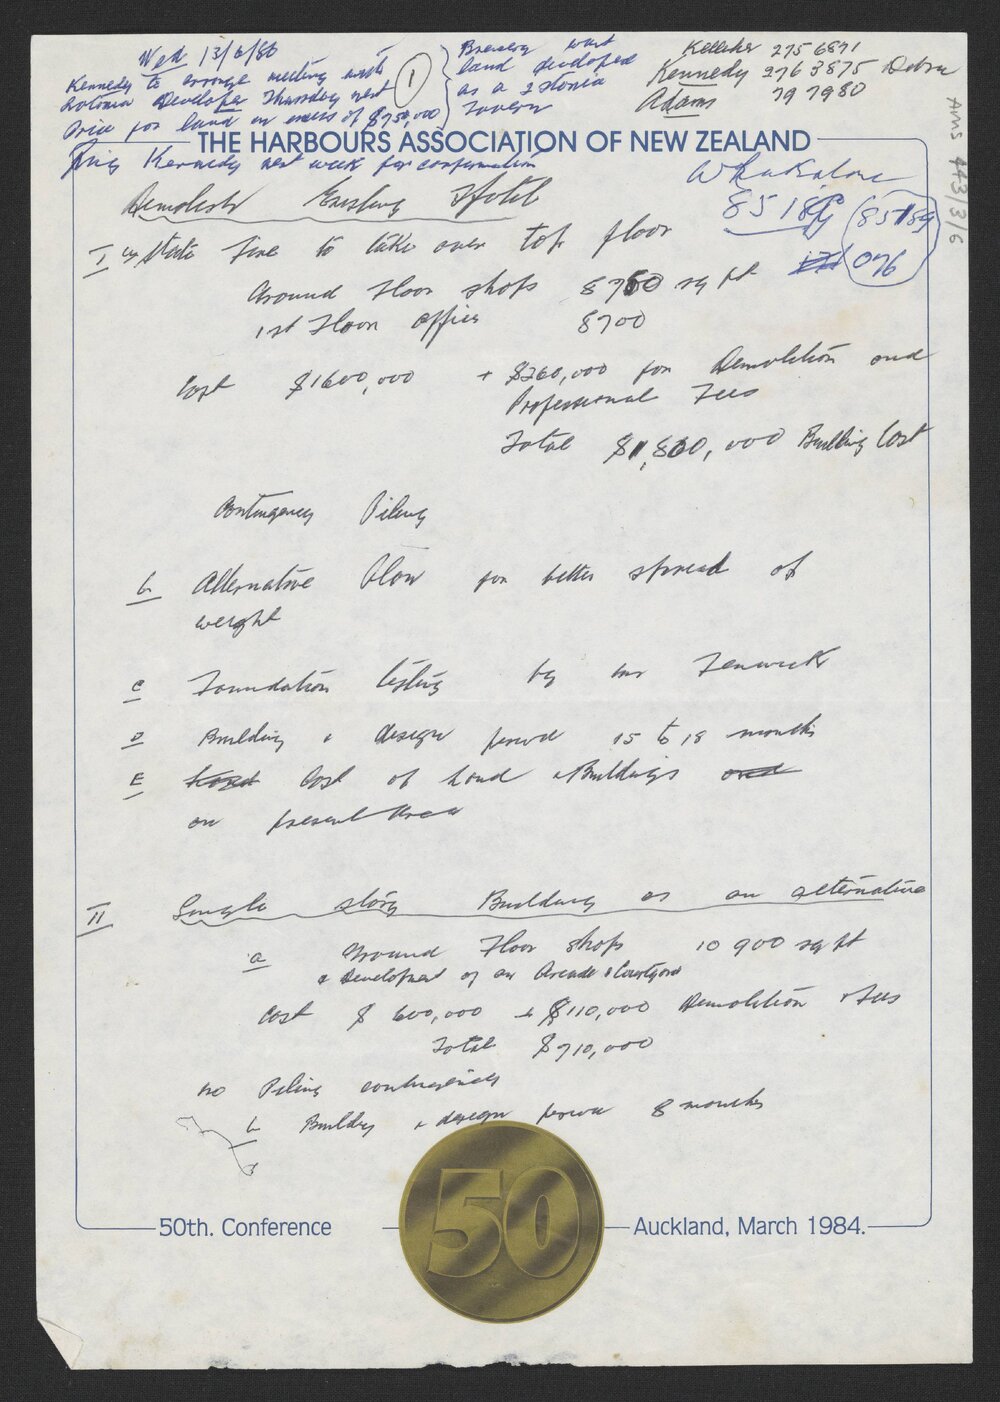 Wed 13/6/86
Kennedy to arrange meeting with
Rotorua Developer Thursday next
Price for land in excess of $750,000
Ring Kennedy next week for confirmation
1
Brewery want
land developed
as a 2 storied
Tavern
Kelleher 275 6871
Kennedy 276 3875 Debra
Adams 79 7980
AMS 443/3/6
THE HARBOURS ASSOCIATION OF NEW ZEALAND
Whakatane
85189 (85189
076
Demolish Existing Hotel
I a State Fire to take over top floor
Ground Floor shops 8700 sq ft
1st Floor offices 8700
Cost $1600,000 + $260,000 for Demolition and
Professional Fees
Total $1,860,000 Building Cost
Contingency Piling
b Alternative Plan for better spread of
weight
c Foundation testing by Mr Fenwick
D Building & design period 15 to 18 months
E Cost of Land & Buildings and
on present Area
II Single story Building as an alternative
a Ground Floor shops 10 900 sq ft
& Development of an Arcade & Courtyard
Cost $ 600,000 + $110,000 Demolition & Fees
Total $710,000
no Piling contingencies
b Building & design period 8 months
50
50th. Conference
Auckland, March 1984.